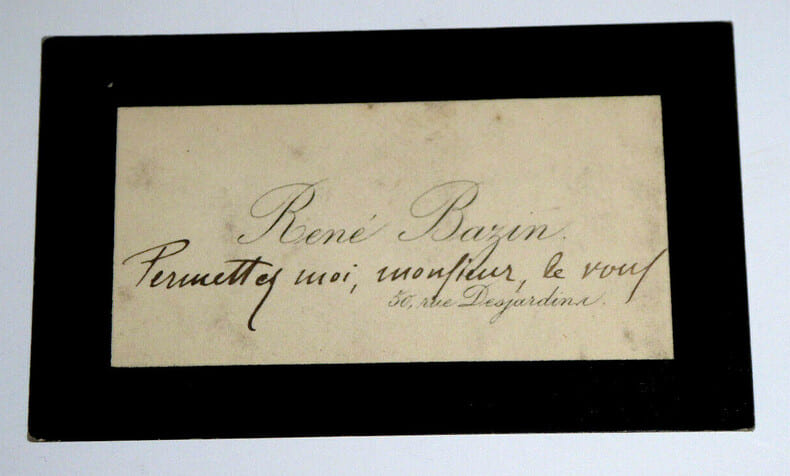 René Bazin.
Permettez moi, monsieur, de vous
50, rue Desjardins.